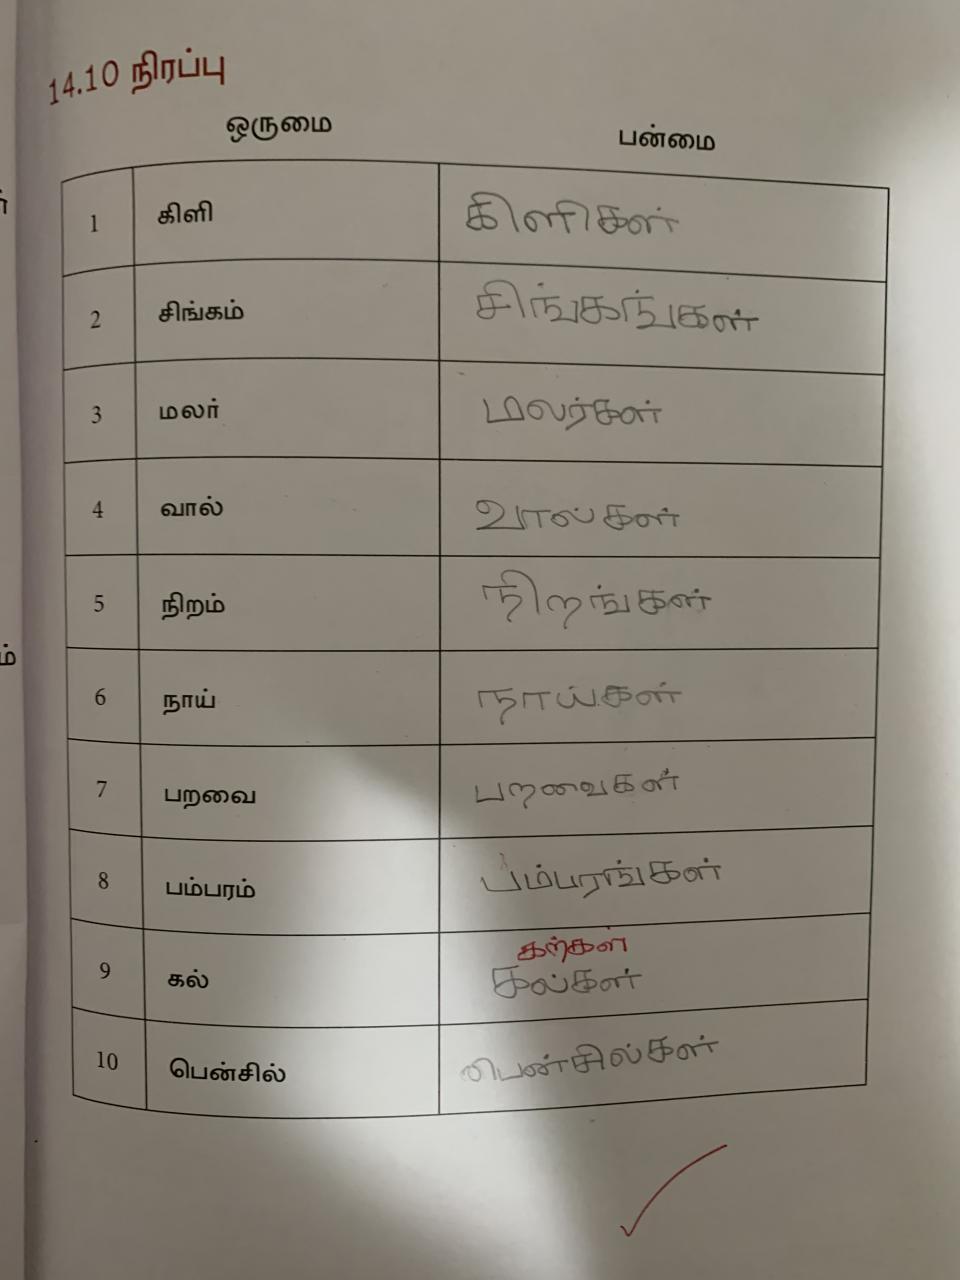 14.10 நிரப்பு
ஒருமை பன்மை
1 கிளி கிளிகள்
2 சிங்கம் சிங்கங்கள்
3 மலர் மலர்கள்
4 வால் வால்கள்
5 நிறம் நிறங்கள்
6 நாய் நாய்கள்
7 பறவை பறவைகள்
8 பம்பரம் பம்பரங்கள்
கற்கள்
9 கல் கல்கள்
10 பென்சில் பென்சில்கள்